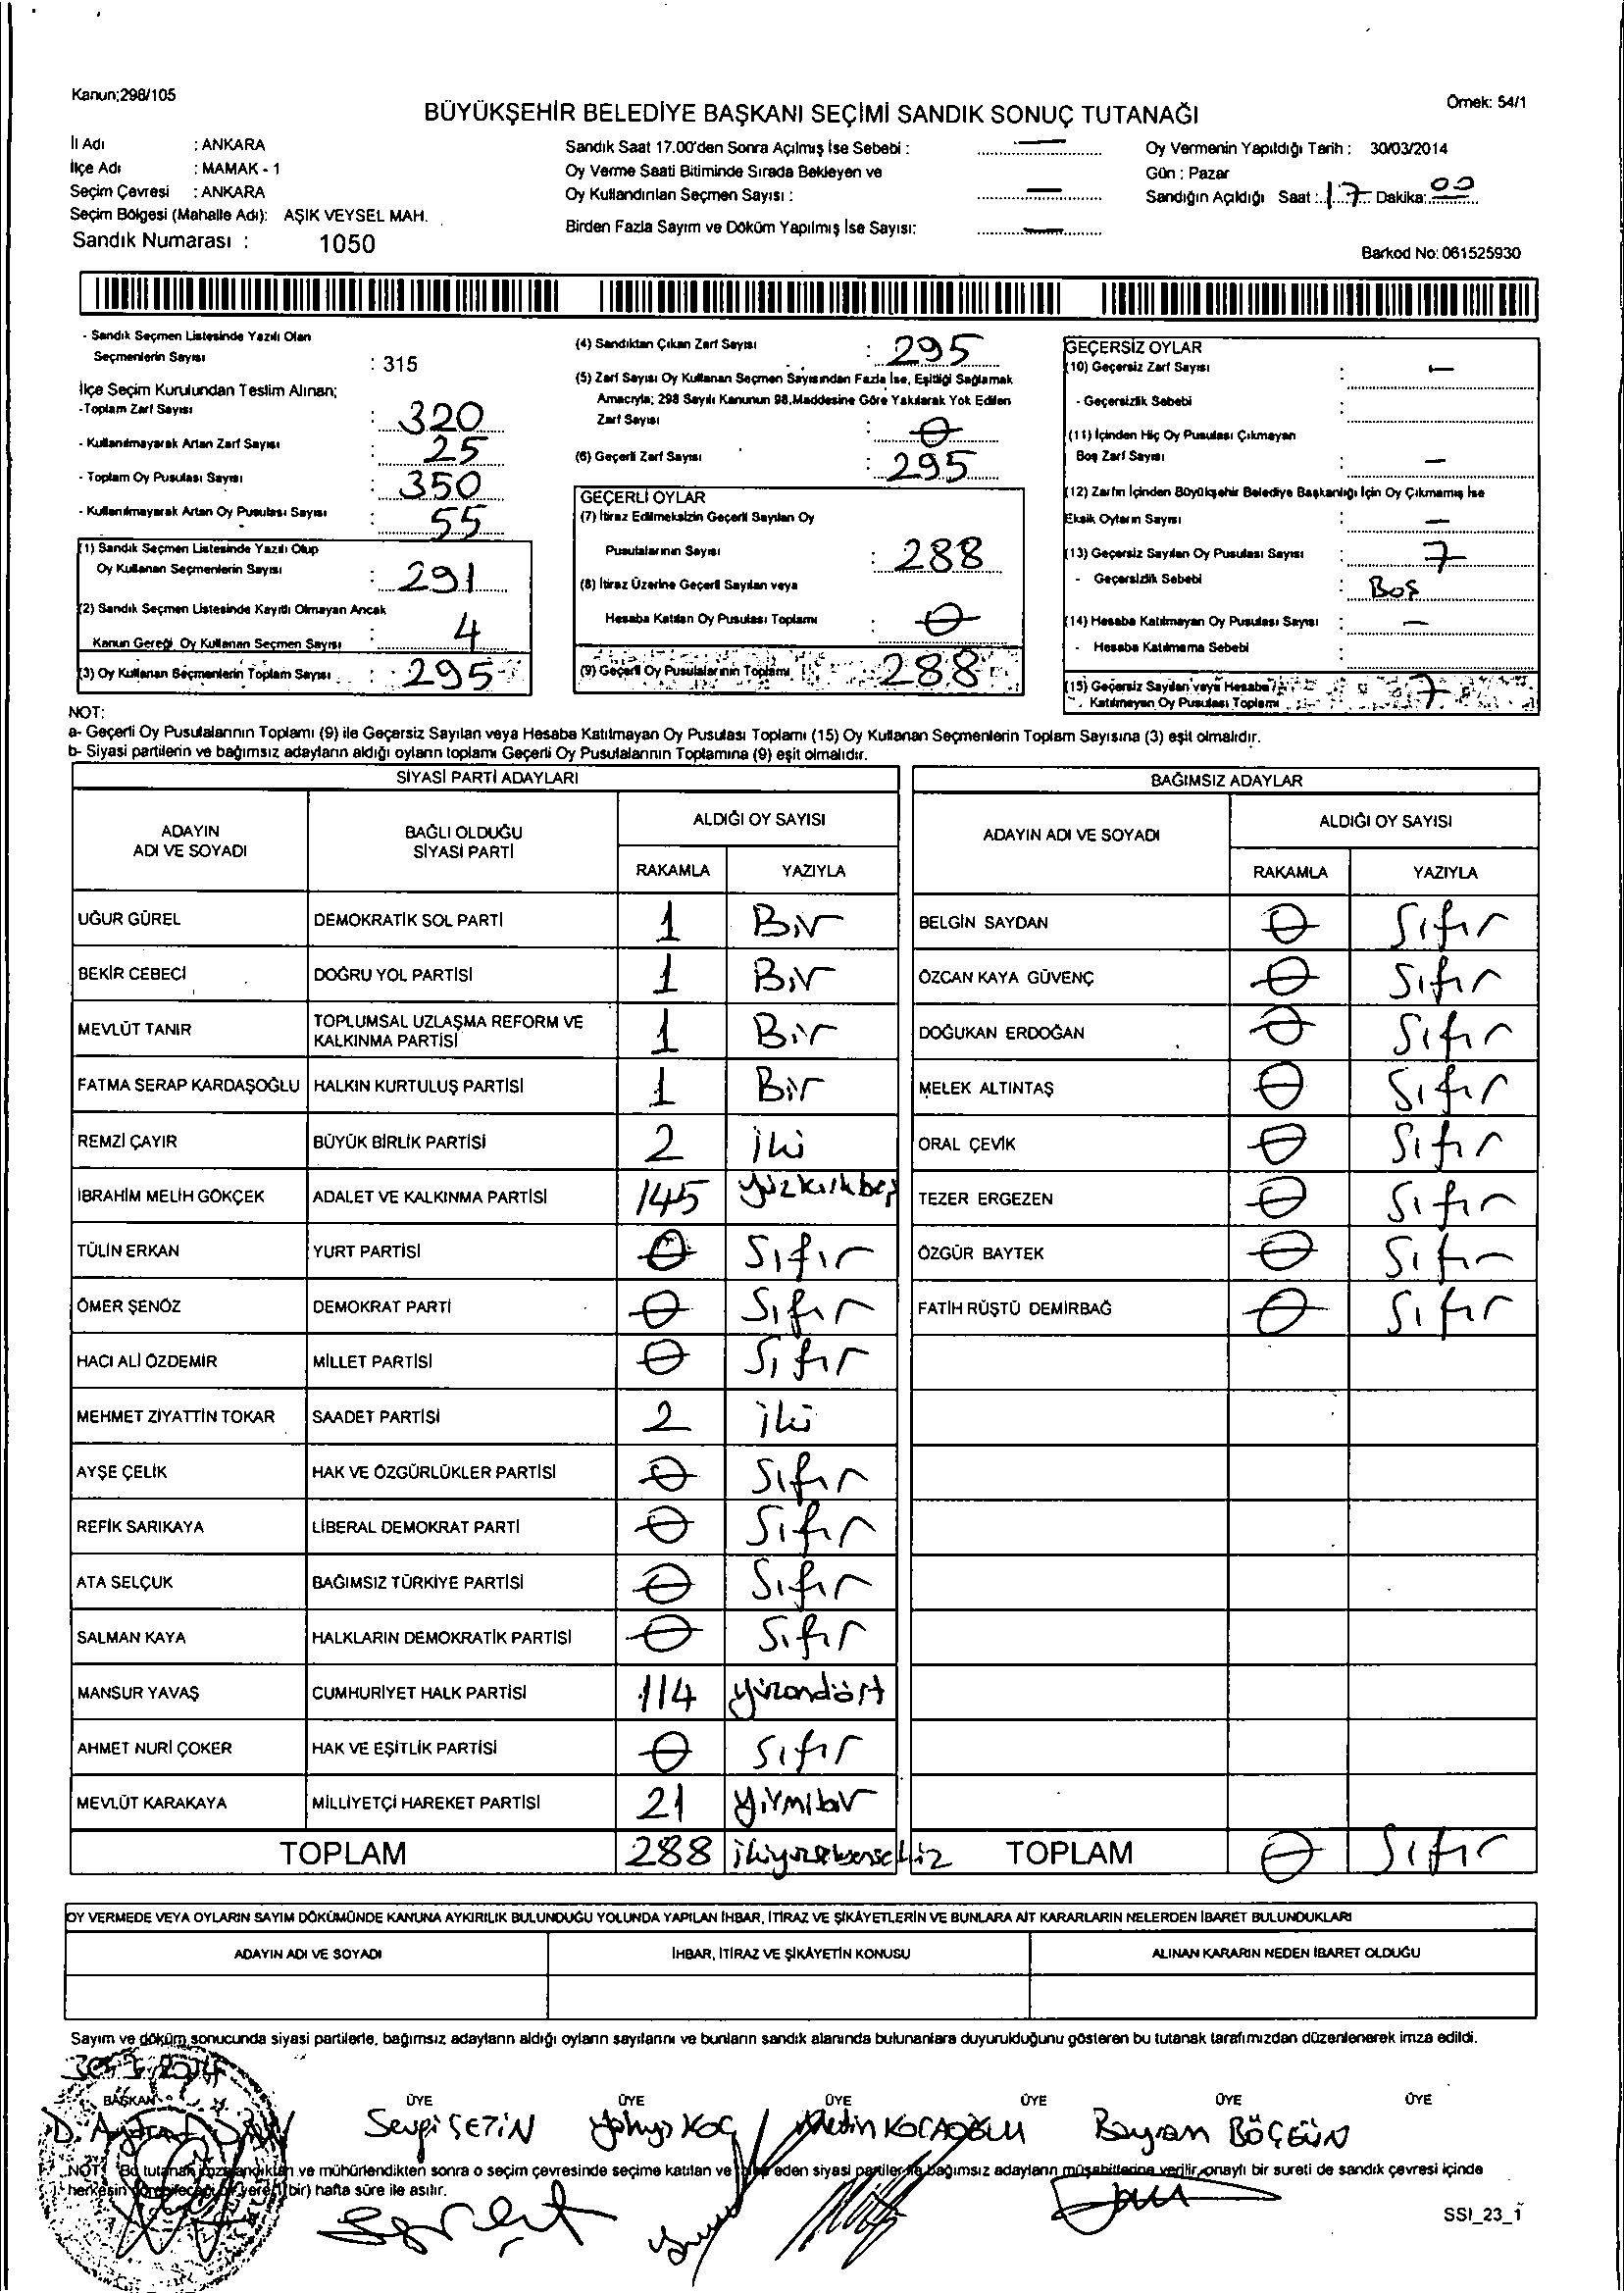 Kanun;298/105
Örnek: 54/1
BÜYÜKŞEHİR BELEDİYE BAŞKANI SEÇİMİ SANDIK SONUÇ TUTANAĞI
İl Adı : ANKARA
İlçe Adı : MAMAK - 1
Seçim Çevresi : ANKARA
Seçim Bölgesi (Mahalle Adı): AŞIK VEYSEL MAH.
Sandık Numarası : 1050
Sandık Saat 17.00'den Sonra Açılmış İse Sebebi : —
Oy Verme Saati Bitiminde Sırada Bekleyen ve
Oy Kullandırılan Seçmen Sayısı : —
Birden Fazla Sayım ve Döküm Yapılmış İse Sayısı: —
Oy Vermenin Yapıldığı Tarih : 30/03/2014
Gün : Pazar
Sandığın Açıldığı Saat : 17 Dakika: 00
Barkod No: 061525930
- Sandık Seçmen Listesinde Yazılı Olan
Seçmenlerin Sayısı : 315
İlçe Seçim Kurulundan Teslim Alınan;
-Toplam Zarf Sayısı : 320
- Kullanılmayarak Artan Zarf Sayısı : 25
- Toplam Oy Pusulası Sayısı : 350
- Kullanılmayarak Artan Oy Pusulası Sayısı : 55
(1) Sandık Seçmen Listesinde Yazılı Olup
Oy Kullanan Seçmenlerin Sayısı : 291
(2) Sandık Seçmen Listesinde Kayıtlı Olmayan Ancak
Kanun Gereği Oy Kullanan Seçmen Sayısı : 4
(3) Oy Kullanan Seçmenlerin Toplam Sayısı : 295
(4) Sandıktan Çıkan Zarf Sayısı : 295
(5) Zarf Sayısı Oy Kullanan Seçmen Sayısından Fazla İse, Eşitliği Sağlamak
Amacıyla; 298 Sayılı Kanunun 98.Maddesine Göre Yakılarak Yok Edilen
Zarf Sayısı : 0
(6) Geçerli Zarf Sayısı : 295
GEÇERLİ OYLAR
(7) İtiraz Edilmeksizin Geçerli Sayılan Oy
Pusulalarının Sayısı : 288
(8) İtiraz Üzerine Geçerli Sayılan veya
Hesaba Katılan Oy Pusulası Toplamı : 0
(9) Geçerli Oy Pusulalarının Toplamı : 288
GEÇERSİZ OYLAR
(10) Geçersiz Zarf Sayısı : —
- Geçersizlik Sebebi :
(11) İçinden Hiç Oy Pusulası Çıkmayan
Boş Zarf Sayısı : —
(12) Zarfın İçinden Büyükşehir Belediye Başkanlığı İçin Oy Çıkmamış İse
Eksik Oyların Sayısı : —
(13) Geçersiz Sayılan Oy Pusulası Sayısı : 7
- Geçersizlik Sebebi : Boş
(14) Hesaba Katılmayan Oy Pusulası Sayısı : —
- Hesaba Katılmama Sebebi :
(15) Geçersiz Sayılan veya Hesaba
Katılmayan Oy Pusulası Toplamı : 7
NOT:
a- Geçerli Oy Pusulalarının Toplamı (9) ile Geçersiz Sayılan veya Hesaba Katılmayan Oy Pusulası Toplamı (15) Oy Kullanan Seçmenlerin Toplam Sayısına (3) eşit olmalıdır.
b- Siyasi partilerin ve bağımsız adayların aldığı oyların toplamı Geçerli Oy Pusulalarının Toplamına (9) eşit olmalıdır.
SİYASİ PARTİ ADAYLARI
ADAYIN ADI VE SOYADI BAĞLI OLDUĞU SİYASİ PARTİ ALDIĞI OY SAYISI
RAKAMLA YAZIYLA
UĞUR GÜREL DEMOKRATİK SOL PARTİ 1 Bir
BEKİR CEBECİ DOĞRU YOL PARTİSİ 1 Bir
MEVLÜT TANIR TOPLUMSAL UZLAŞMA REFORM VE KALKINMA PARTİSİ 1 Bir
FATMA SERAP KARDAŞOĞLU HALKIN KURTULUŞ PARTİSİ 1 Bir
REMZİ ÇAYIR BÜYÜK BİRLİK PARTİSİ 2 iki
İBRAHİM MELİH GÖKÇEK ADALET VE KALKINMA PARTİSİ 145 yüzkırkbeş
TÜLİN ERKAN YURT PARTİSİ 0 Sıfır
ÖMER ŞENÖZ DEMOKRAT PARTİ 0 Sıfır
HACI ALİ ÖZDEMİR MİLLET PARTİSİ 0 Sıfır
MEHMET ZİYATTİN TOKAR SAADET PARTİSİ 2 iki
AYŞE ÇELİK HAK VE ÖZGÜRLÜKLER PARTİSİ 0 Sıfır
REFİK SARIKAYA LİBERAL DEMOKRAT PARTİ 0 Sıfır
ATA SELÇUK BAĞIMSIZ TÜRKİYE PARTİSİ 0 Sıfır
SALMAN KAYA HALKLARIN DEMOKRATİK PARTİSİ 0 Sıfır
MANSUR YAVAŞ CUMHURİYET HALK PARTİSİ 114 yüzondört
AHMET NURİ ÇOKER HAK VE EŞİTLİK PARTİSİ 0 Sıfır
MEVLÜT KARAKAYA MİLLİYETÇİ HAREKET PARTİSİ 21 yirmibir
TOPLAM 288 ikiyüzseksensekiz
BAĞIMSIZ ADAYLAR
ADAYIN ADI VE SOYADI ALDIĞI OY SAYISI
RAKAMLA YAZIYLA
BELGİN SAYDAN 0 Sıfır
ÖZCAN KAYA GÜVENÇ 0 Sıfır
DOĞUKAN ERDOĞAN 0 Sıfır
MELEK ALTINTAŞ 0 Sıfır
ORAL ÇEVİK 0 Sıfır
TEZER ERGEZEN 0 Sıfır
ÖZGÜR BAYTEK 0 Sıfır
FATİH RÜŞTÜ DEMİRBAĞ 0 Sıfır
TOPLAM 0 Sıfır
OY VERMEDE VEYA OYLARIN SAYIM DÖKÜMÜNDE KANUNA AYKIRILIK BULUNDUĞU YOLUNDA YAPILAN İHBAR, İTİRAZ VE ŞİKAYETLERİN VE BUNLARA AİT KARARLARIN NELERDEN İBARET BULUNDUKLARI
ADAYIN ADI VE SOYADI İHBAR, İTİRAZ VE ŞİKAYETİN KONUSU ALINAN KARARIN NEDEN İBARET OLDUĞU
Sayım ve döküm sonucunda siyasi partilerle, bağımsız adayların aldığı oyların sayılarını ve bunların sandık alanında bulunanlara duyurulduğunu gösteren bu tutanak tarafımızdan düzenlenerek imza edildi.
BAŞKAN ÜYE ÜYE ÜYE ÜYE ÜYE ÜYE
Sevgi ÇETİN Yahya KOÇ Metin KOCAOĞLU Bayram BÖÇGÜN
NOT: Bu tutanak imzalandıktan ve mühürlendikten sonra o seçim çevresinde seçime katılan ve eden siyasi partilerle bağımsız adayların müşahitlerine verilir, onaylı bir sureti de sandık çevresi içinde
herkesin görebileceği bir yere (bir) hafta süre ile asılır.
SSI_23_1